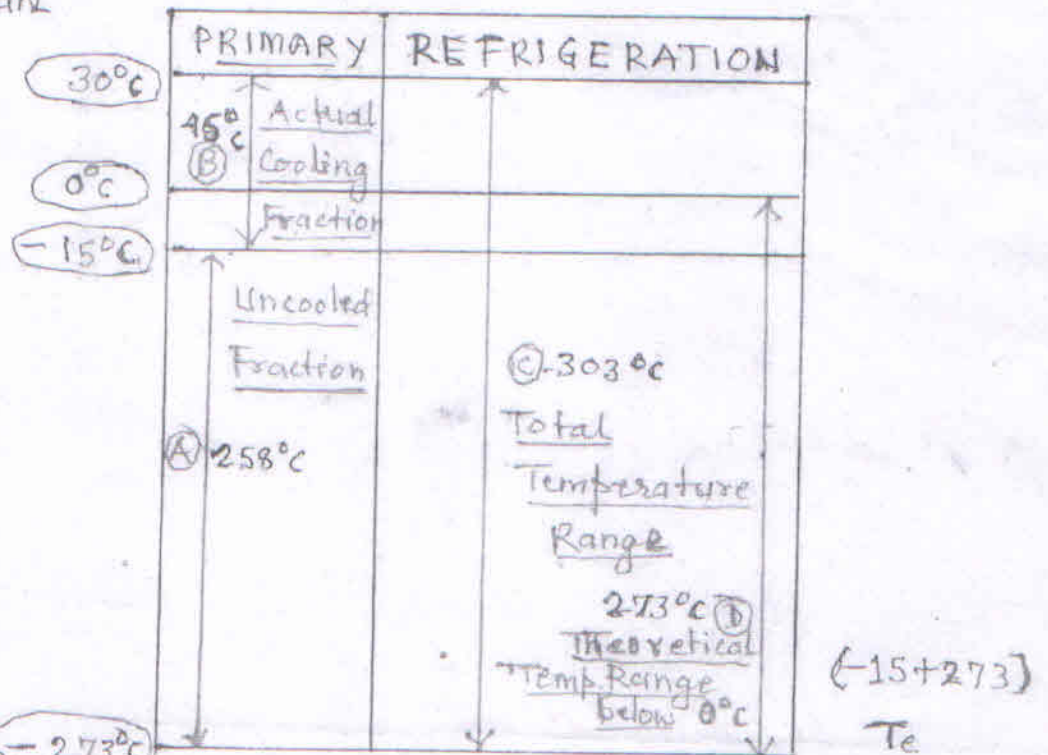 PRIMARY
REFRIGERATION
30°C
45°C
B
Actual
Cooling
Fraction
0°C
-15°C
Uncooled
Fraction
C -303°C
Total
Temperature
Range
A 258°C
273°C D
Theoretical
Temp. Range
below 0°C
(-15+273)
Te
-273°C